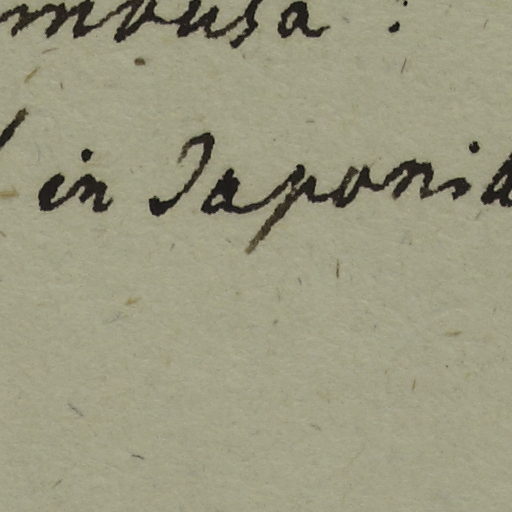 mbusa :
in Japonia